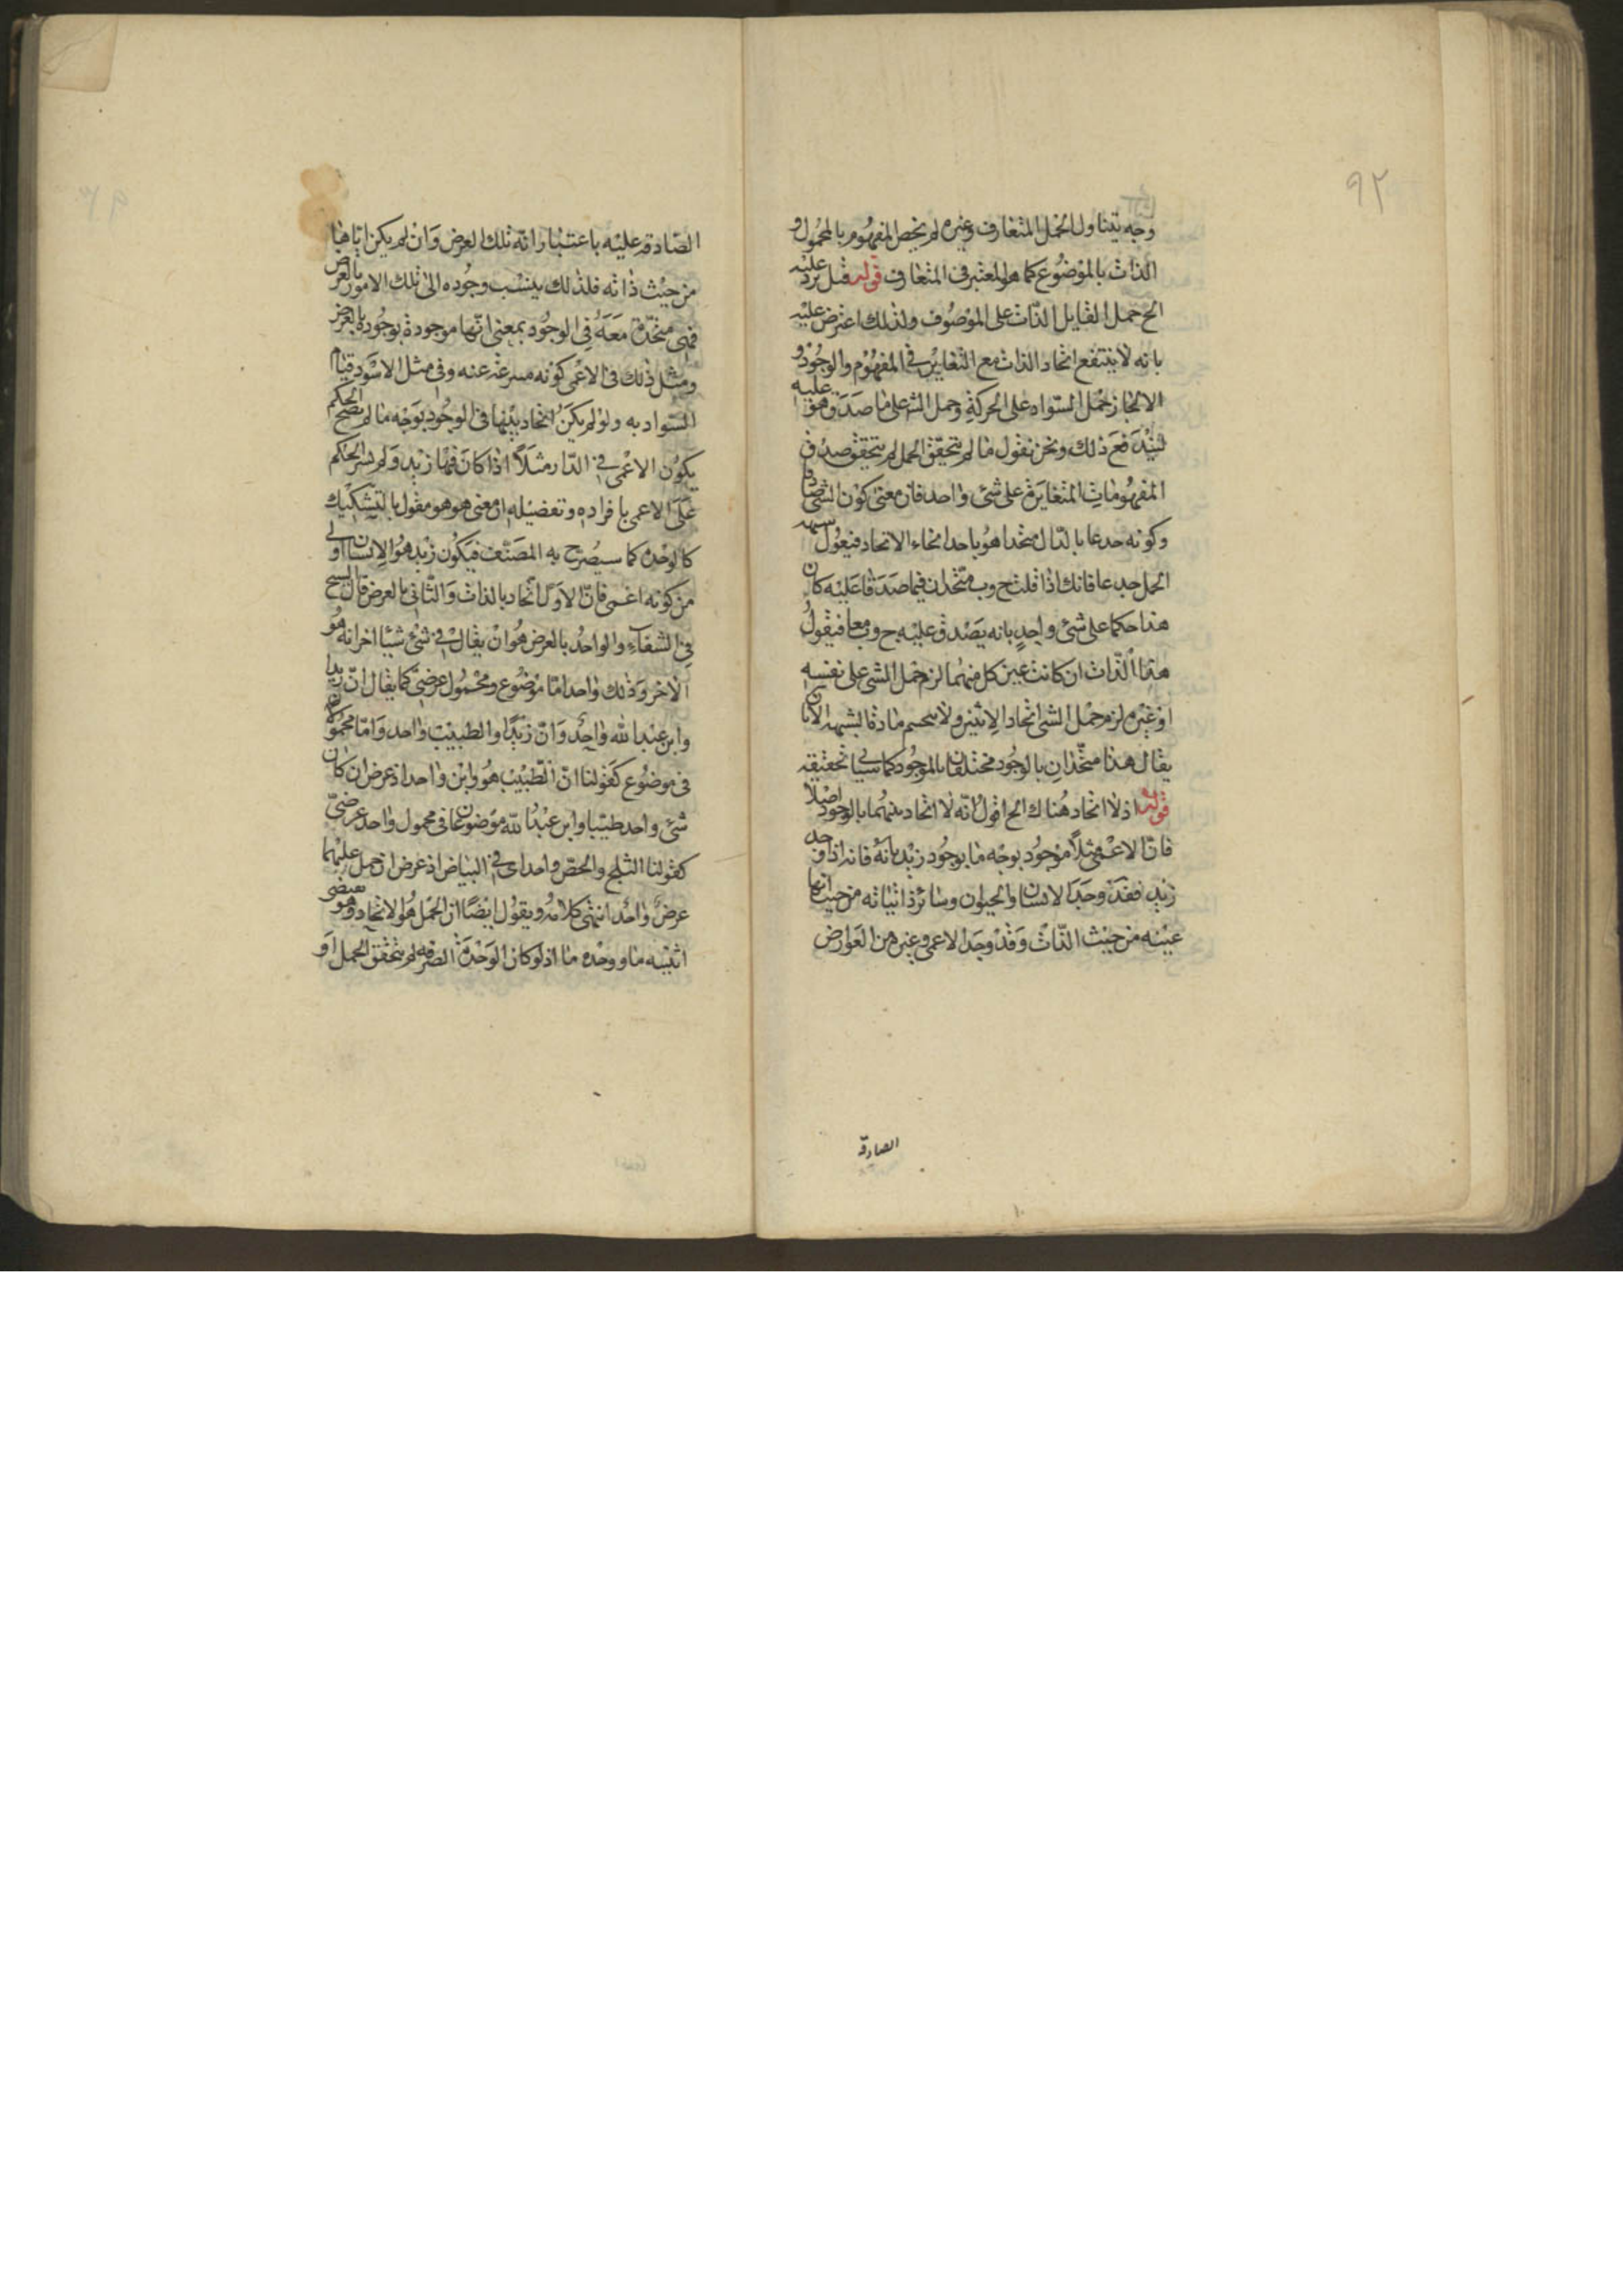 ٩٢
وجه يتناول الحمل المتعارف وغيره لم يخص المفهوم بالمحمول و
الذات بالموضوع كما هو المعتبر في المتعارف قوله قيل يرد عليه
الخ حمل القايل الذات على الموصوف ولذلك اعترض عليه
بانه لا ينفع اتحاد الذات مع التغاير في المفهوم والوجود و
الا لجاز حمل السواد على الحركة وحمل الشى على ما صدق هو عليه
ليندفع ذلك ونحن نقول ما لم يتحقق الحمل لم يتحقق صدق
المفهومات المتغايرة على شئ واحد فان معنى كون الشى صادقا
وكونه متحدا هو باحد انحاء الاتحاد فيعول
الحمل فانك اذا قلت ح وب متحدان فيما صدقا عليه كان
هذا حكما على شئ واحد بانه يصدق عليه ح وب معا فيقول
هذا الذات ان كانت عين كل منهما لزم حمل الشى على نفسه
او غيره لزم حمل الشئ اتحاد الاثنين ولا ينحسم مادة الشبهة الا بان
يقال هذا متحدان بالوجود مختلفان بالموجود كما سياتى تحقيقه
قوله اذ لا اتحاد هناك الخ اقول انه لا اتحاد بينهما بالوجود اصلا
فان الاعمى مثلا موجود بوجه ما بوجود زيد فانه اذا وجد
زيد فقد وجد الانسان والحيوان وسائر ذاتياته من حيث انها
عينه من حيث الذات وقد وجد الاعمى وغيره من العوارض
الصادقة
الصادقة عليه باعتبار انه تلك العرض وان لم يكن اياها
من حيث ذاته فلذلك ينسب وجوده الى تلك الامور بالعرض
فهى متحدة معه في الوجود بمعنى انها موجودة بوجوده بالعرض
ومثل ذلك في الاعمى كونه عنه وفى مثل الاسود قيام
السواد به ولو لم يكن اتحاد بينها في الوجود بوجه ما لم يصح الحكم
بكون الاعمى في الدار مثلا اذا كان فيها زيد ولم يسر الحكم
على الاعمى بافراده وتفضيله ان معنى هو هو مقول بالتشكيك
كالوحدة كما سيصرح به المصنف فيكون زيد هو الانسان اولى
من كونه اعمى فان الاول اتحاد بالذات والثانى بالعرض قال الشيخ
في الشفاء والواحد بالعرض هو ان يقال في شئ شيئا اخر انه هو
الاخر وذلك واحد اما موضوع ومحمول عرضى كما يقال ان زيدا
وابن عبد الله واحد وان زيدا والطبيب واحد واما محمولان
في موضوع كقولنا ان الطبيب هو وابن واحد اذ عرض ان كان
شئ واحد طبيبا وابن عبد الله او موضوعان في محمول واحد عرضى
كقولنا الثلج والجص واحد اى في البياض اذ عرض ان حمل عليهما
عرض واحد انتهى كلامه ونقول ايضا ان الحمل هو الاتحاد وهو يقتضى
اثنينية ما ووحدة ما اذ لو كان الوحدة الصرفة لم يتحقق الحمل او